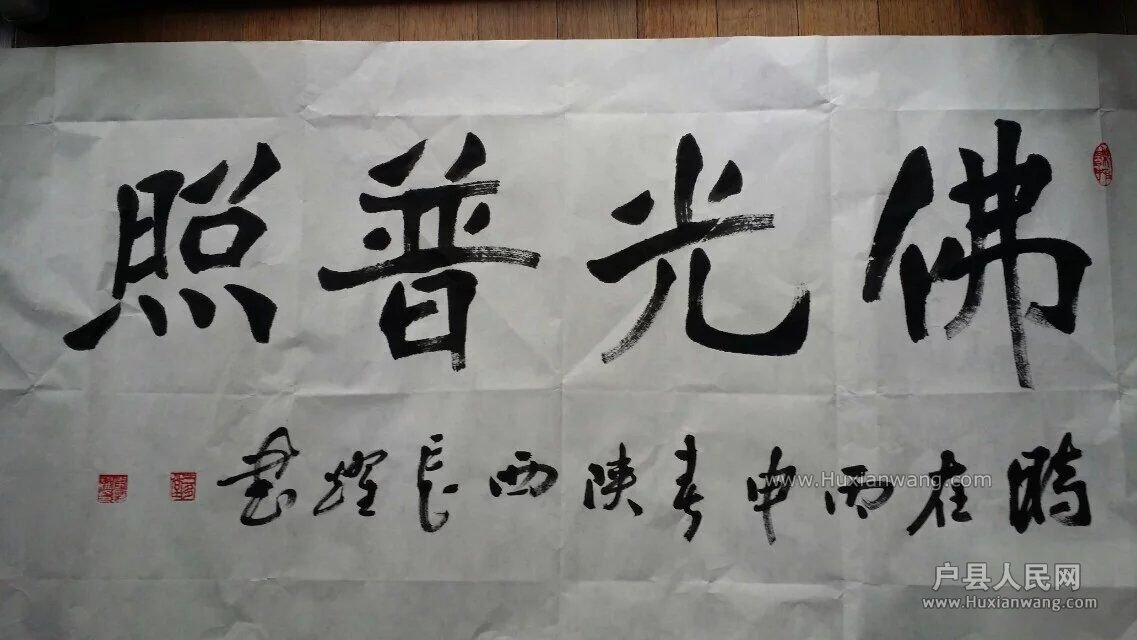 佛光普照
時在丙申春陕西長耀書
www.Huxianwang.com
户县人民网
www.Huxianwang.com